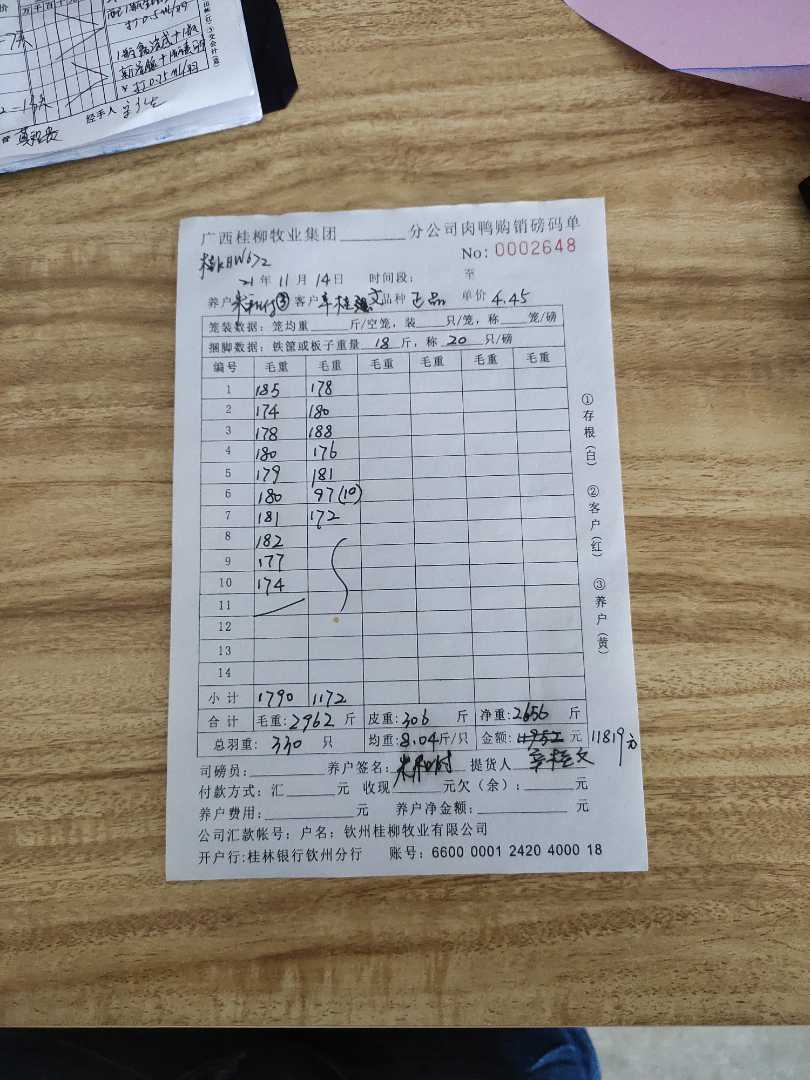 打0.5ml/羽
经手人
广西桂柳牧业集团________分公司肉鸭购销磅码单
No: 0002648
21年11月14日 时间段: 至
养户 客户 品种 正品 单价 4.45
笼装数据: 笼均重______斤/空笼, 装____只/笼, 称____笼/磅
捆脚数据: 铁筐或板子重量 18 斤, 称 20 只/磅
编号 毛重 毛重 毛重 毛重 毛重 毛重
1 185 178
2 174 180
3 178 188
4 180 176
5 179 181
6 180 97(10)
7 181 172
8 182
9 177
10 174
11
12
13
14
小计 1790 1172
合计 毛重: 2962 斤 皮重: 306 斤 净重: 2656 斤
总羽重: 330 只 均重: 8.04 斤/只 金额: 元 11819元
司磅员: 养户签名: 提货人
付款方式: 汇______元 收现______元欠(余):______元
养户费用:__________元 养户净金额:__________元
公司汇款帐号; 户名: 钦州桂柳牧业有限公司
开户行:桂林银行钦州分行 账号: 6600 0001 2420 4000 18
①存根(白) ②客户(红) ③养户(黄)